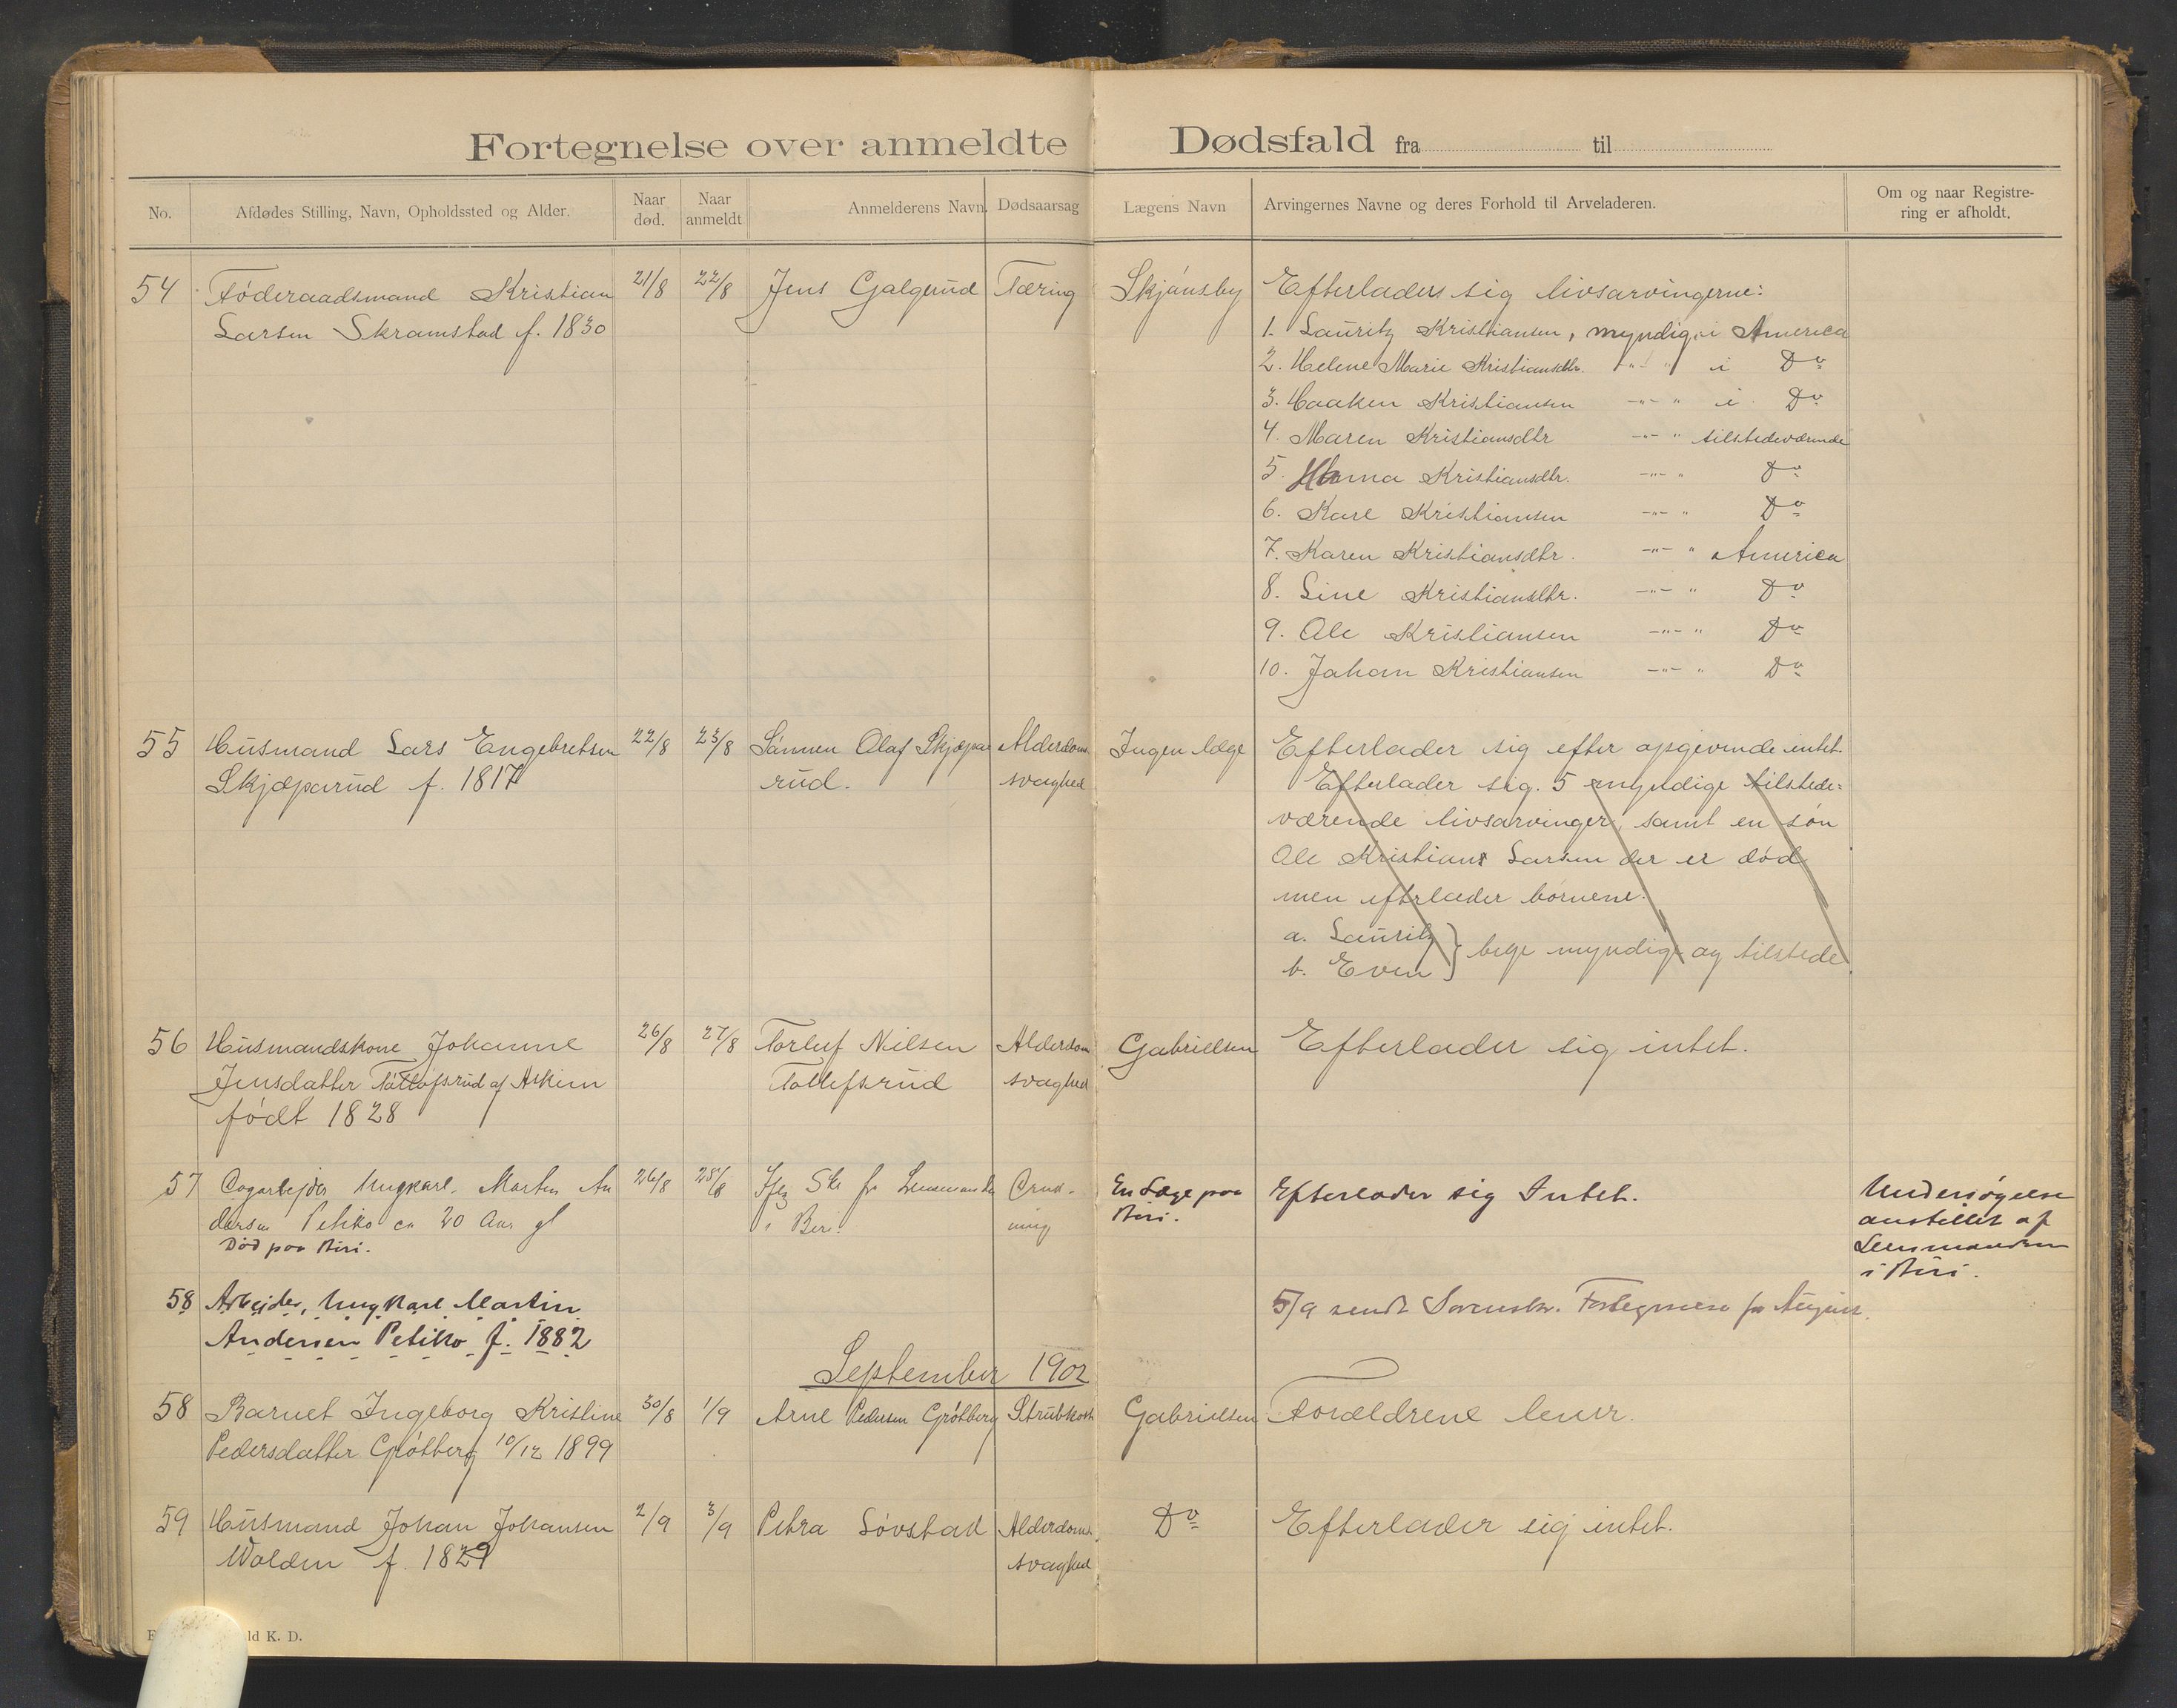 Fortegnelse over anmeldte Dødsfald fra til
No.
Afdødes Stilling, Navn, Opholdssted og Alder.
Naar
død.
Naar
anmeldt
Anmelderens Navn.
Dødsaarsag
Lægens Navn
Arvingernes Navne og deres Forhold til Arveladeren.
Om og naar Registre-
ring er afholdt.
54 Föderaadsmand Kristian 21/8 22/8 Jens Galgerud Tæring Skjönsby Efterlader sig livsarvingerne:
Larsen Skramstad f. 1830
1. Lauritz Kristiansen, myndig, i America
2. Helene Marie Kristiansdtr. -"- " i Do
3. Haaken Kristiansen -"- " i Do
4. Maren Kristiansdtr -"- " tilstedeværende
5. Kristiansdtr. -"- " Do
6. Karl Kristiansen -"- " Do
7. Karen Kristiansdtr. -"- " America
8. Line Kristiansdtr. -"- " Do
9. Ole Kristiansen -"- " Do
10. Johan Kristiansen -"- " Do
55 Husmand Lars Engebretsen 22/8 23/8 Sönnen Olaf Skjæpa Alderdoms Ingen læge Efterlader sig efter opgivende intet.
Skjæparud f. 1817 rud. svaghed Efterlader sig. 5 myndige tilstede=
værende livsarvinger, samt en sön
Ole Kristian Larsen der er död
men efterlader börnene:
a. Lauritz
b. Even } begge myndig og tilstede
56 Husmandskone Johanne 26/8 27/8 Torluf Nilsen Alderdom Gabrielsen Efterlader sig intet.
Jensdatter Tollofsrud af Askim Tollefsrud svaghed
födt 1828
57 Ungkarl Martin An 26/8 28/8 En Læge paa Efterlader sig Intet. Undersøgelse
dersen Petiko ca 20 Aar gl i Biri. Biri. anstillet af
Død paa Biri. Lensmanden
i Biri.
58 Arbejder, Ungkarl Martin 5/9 sendt Sorenskr. Fortegnelse for August.
Andersen Petiko f. 1882
September 1902
58 Barnet Ingeborg Kristine 30/8 1/9 Arne Pedersen Grötberg Strubehoste Gabrielsen Forældrene lever.
Pedersdatter Grötberg 10/12 1899
59 Husmand Johan Johansen 2/9 3/9 Petra Lövstad Alderdoms Do Efterlader sig intet.
Wolden f. 1829 svaghed
ld K. D.